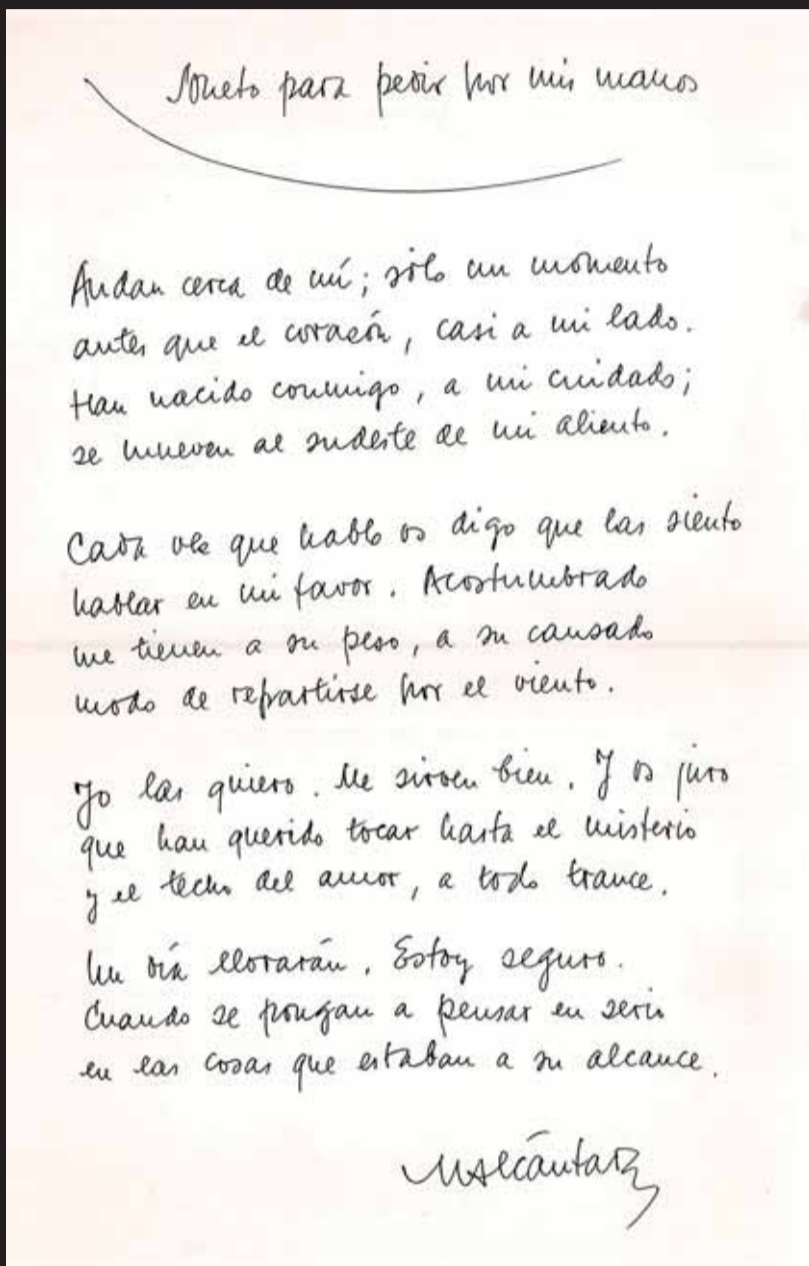 Soneto para pedir por mis manos
Andan cerca de mí; sólo un momento
antes que el corazón, casi a mi lado.
Han nacido conmigo, a mi cuidado;
se mueven al sudeste de mi aliento.
Cada vez que hablo os digo que las siento
hablar en mi favor. Acostumbrado
me tienen a su peso, a su cansado
modo de repartirse por el viento.
Yo las quiero. Me sirven bien. Y os juro
que han querido tocar hasta el misterio
y el techo del amor, a todo trance.
Un día llorarán. Estoy seguro.
Cuando se pongan a pensar en serio
en las cosas que estaban a su alcance.
MAlcántara